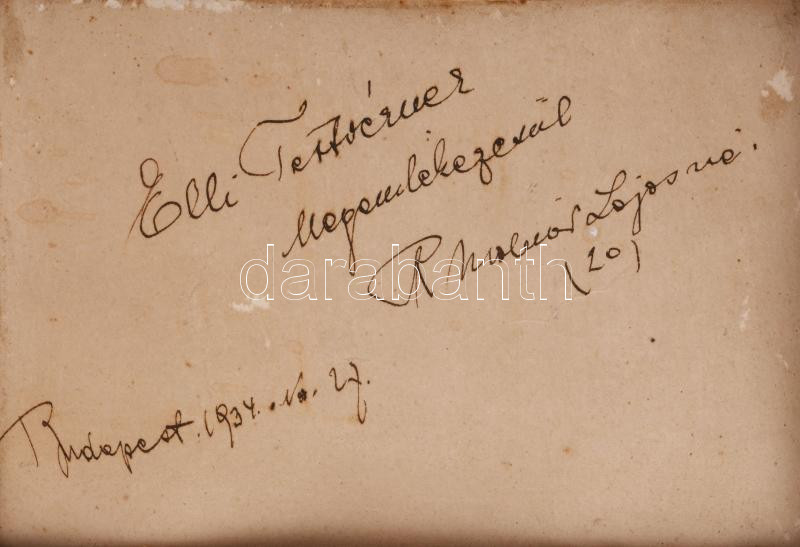 Elli Testvérnek
Megemlékezésül
R. Molnár Lajosné.
(20)
darabanth
Budapest. 1934. IV. 27.